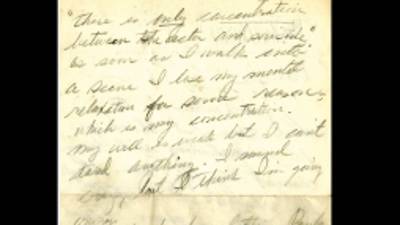 "there is only concentration
between the actor and suicide"
as soon as I walk into
a scene I lose my mental
relaxation for some reason,
which is my concentration.
My will is weak but I can't
stand anything. I sound
crazy, but I think I'm going
crazy.